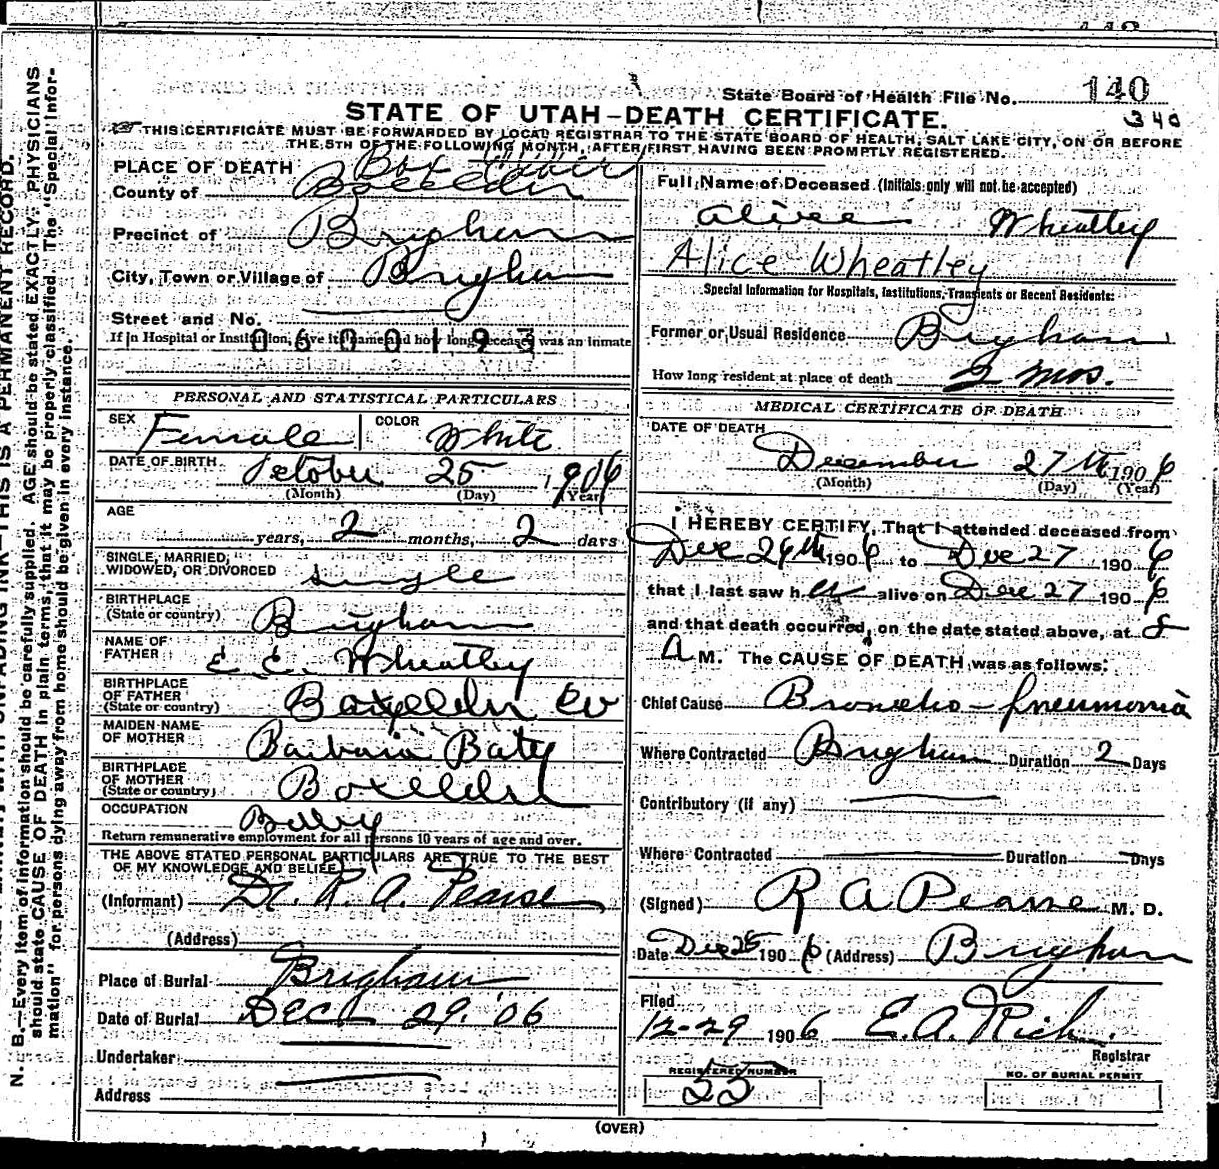 State Board of Health File No. 140
STATE OF UTAH—DEATH CERTIFICATE.
340
THIS CERTIFICATE MUST BE FORWARDED BY LOCAL REGISTRAR TO THE STATE BOARD OF HEALTH, SALT LAKE CITY, ON OR BEFORE
THE 5TH OF THE FOLLOWING MONTH, AFTER FIRST HAVING BEEN PROMPTLY REGISTERED.
PLACE OF DEATH Box Elder
County of Boxelder
Precinct of Brigham
City, Town or Village of Brigham
Street and No.
If in Hospital or Institution, give its name and how long deceased was an inmate
0600193
PERSONAL AND STATISTICAL PARTICULARS
SEX Female COLOR White
DATE OF BIRTH October 25, 1906
(Month) (Day) (Year)
AGE
years, 2 months, 2 days
SINGLE, MARRIED,
WIDOWED, OR DIVORCED single
BIRTHPLACE
(State or country) Brigham
NAME OF
FATHER E. E. Wheatley
BIRTHPLACE
OF FATHER
(State or country) Boxelder Co
MAIDEN NAME
OF MOTHER Barbara Baty
BIRTHPLACE
OF MOTHER
(State or country) Boxelder
OCCUPATION Baby
Return remunerative employment for all persons 10 years of age and over.
THE ABOVE STATED PERSONAL PARTICULARS ARE TRUE TO THE BEST
OF MY KNOWLEDGE AND BELIEF
(Informant) Dr. R. A. Pearse
(Address)
Place of Burial Brigham
Date of Burial Dec 29, '06
Undertaker
Address
Full Name of Deceased (Initials only will not be accepted)
Alice Wheatley
Alice Wheatley
Special Information for Hospitals, Institutions, Transients or Recent Residents:
Former or Usual Residence Brigham
How long resident at place of death 2 mos.
MEDICAL CERTIFICATE OF DEATH
DATE OF DEATH
December 27th 1906
(Month) (Day) (Year)
I HEREBY CERTIFY, That I attended deceased from
Dec 26th 1906 to Dec 27 1906
that I last saw her alive on Dec 27 1906
and that death occurred, on the date stated above, at 8
A M. The CAUSE OF DEATH was as follows:
Chief Cause Broncho-pneumonia
Where Contracted Brigham Duration 2 Days
Contributory (if any)
Where Contracted Duration Days
(Signed) R A Pearse M. D.
Date Dec 28 1906 (Address) Brigham
Filed
12-29 1906 E. A. Rich.
Registrar
REGISTERED NUMBER
55
NO. OF BURIAL PERMIT
(OVER)
N. B.—Every item of information should be carefully supplied. AGE should be stated EXACTLY. PHYSICIANS
should state CAUSE OF DEATH in plain terms, that it may be properly classified. The "Special Infor-
mation" for persons dying away from home should be given in every instance.
UNFADING INK—THIS IS A PERMANENT RECORD.